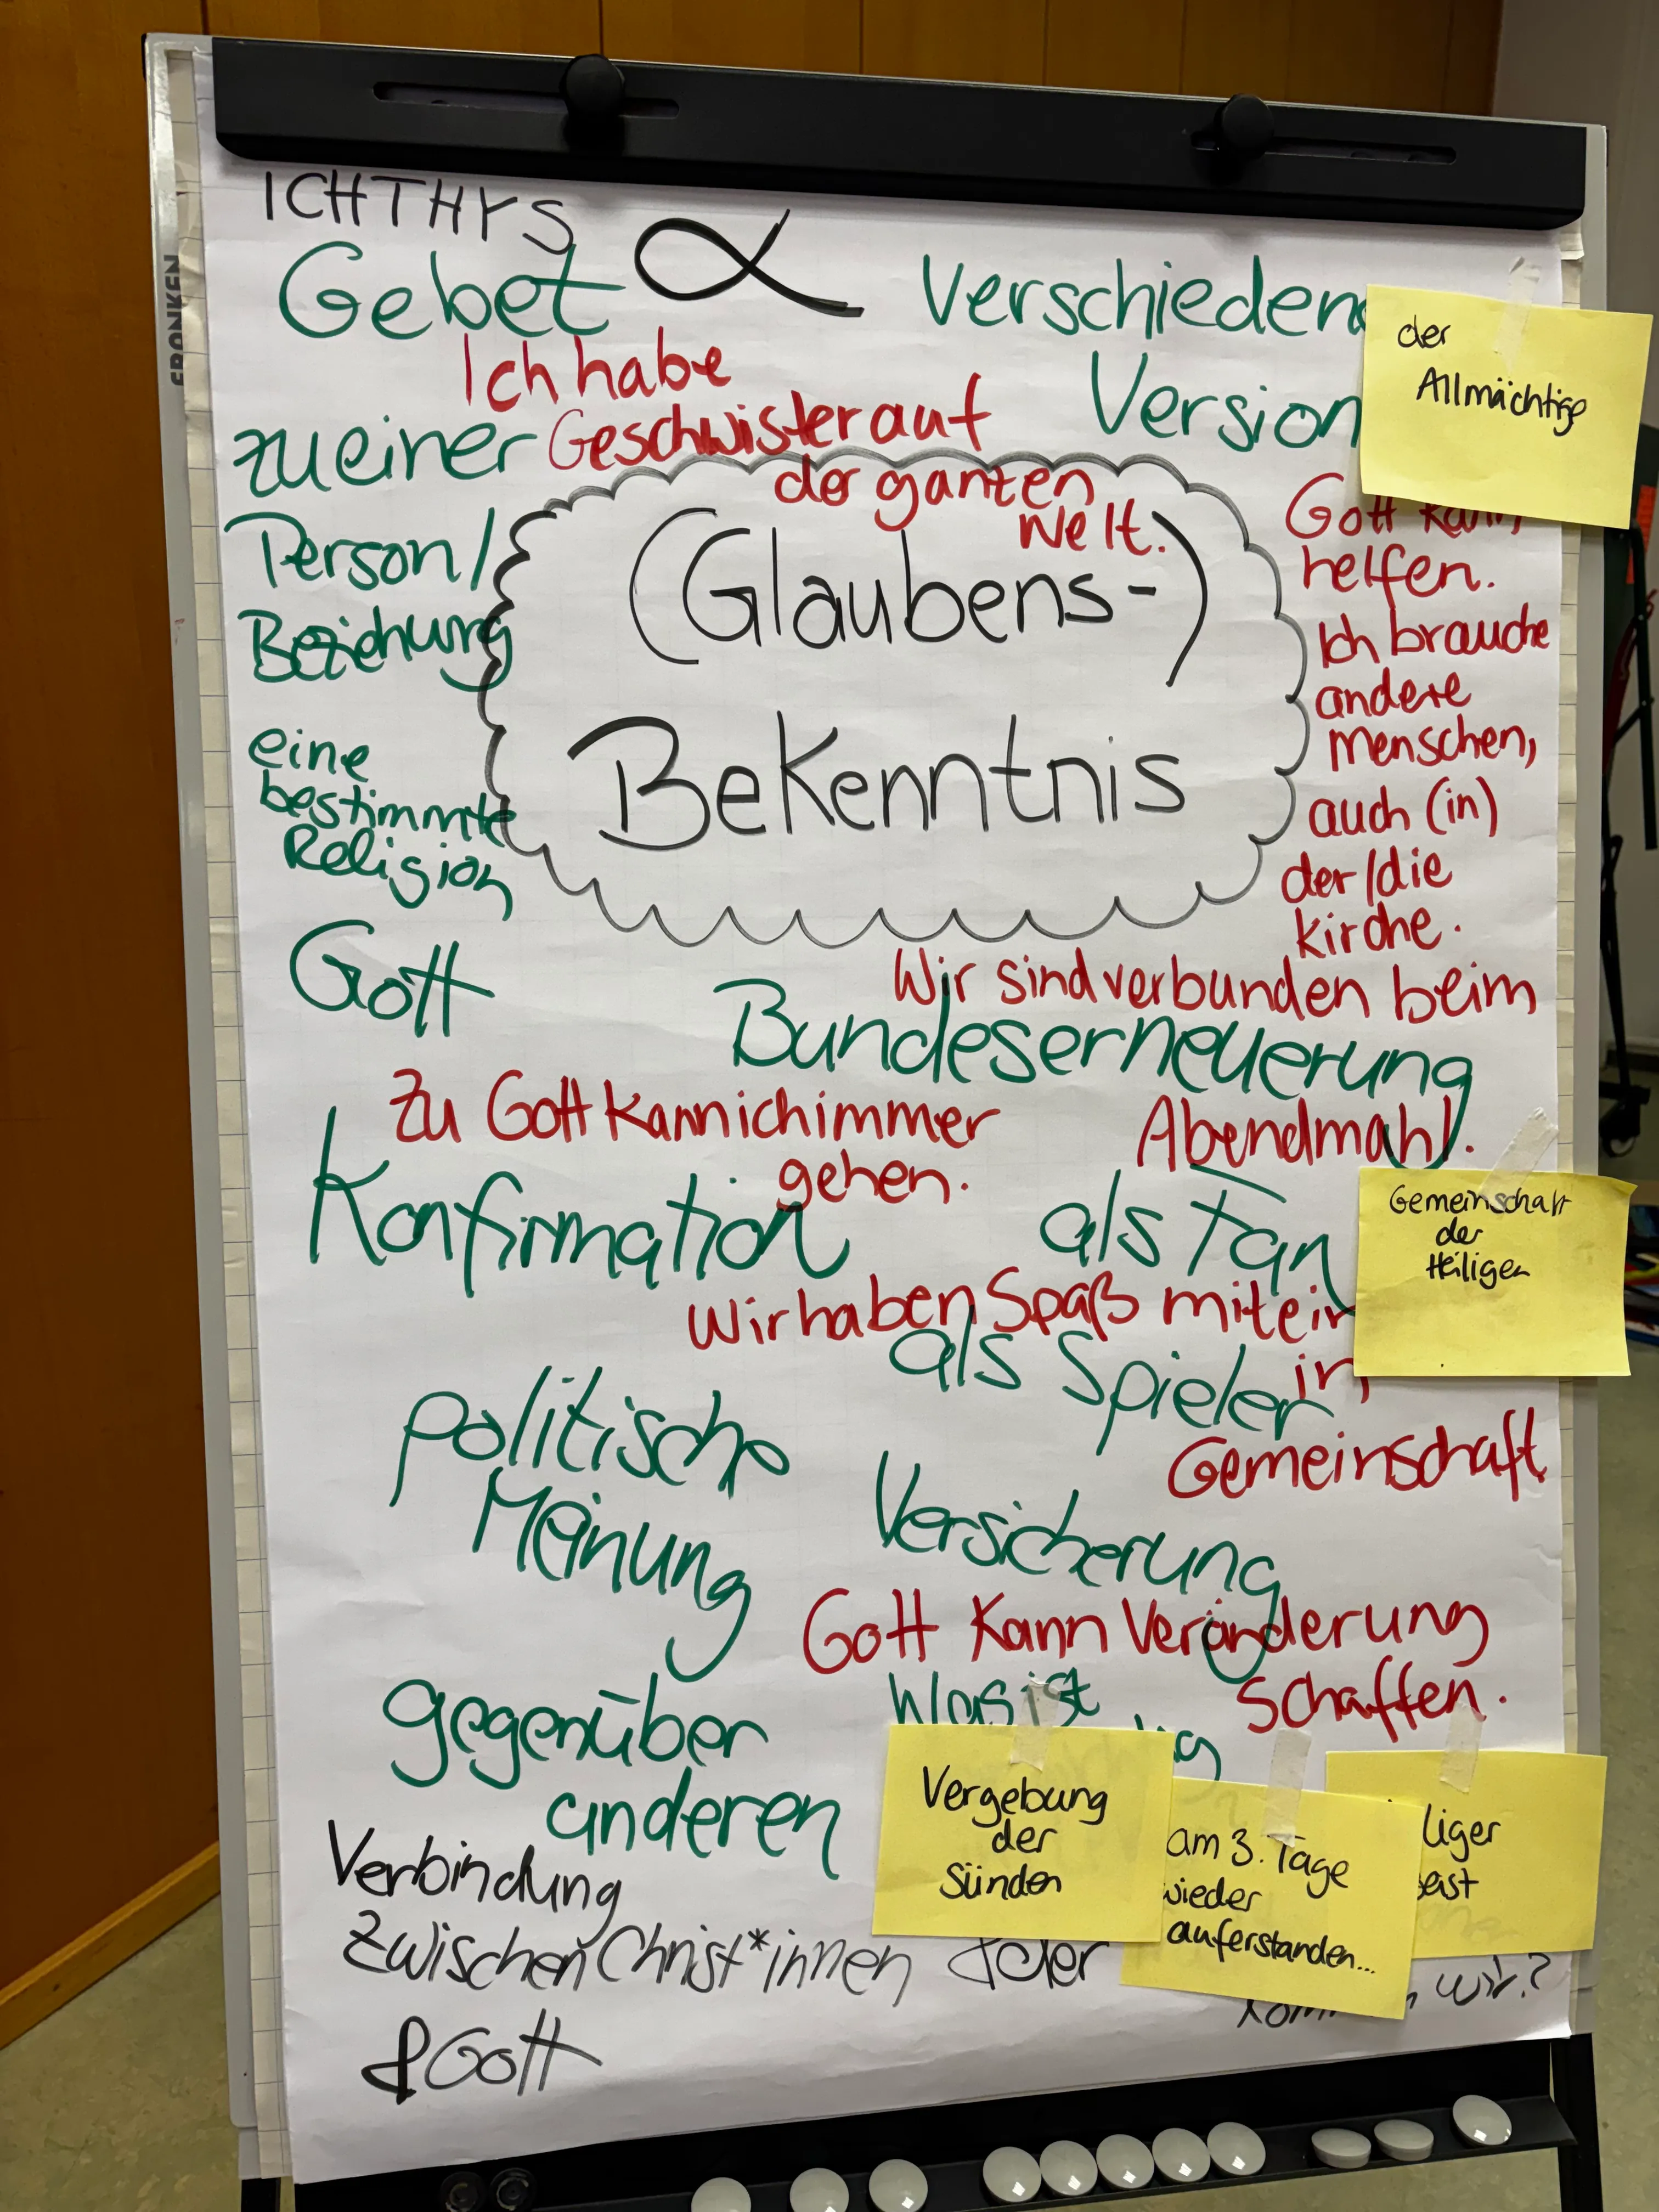 ICHTHYS
Gebet
Verschiedene
Version
der
Allmächtige
Ich habe
Geschwister auf
der ganzen
Welt.
zu einer
Person/
Beziehung
(Glaubens-)
Bekenntnis
eine
bestimmte
Religion
Gott
Gott kann
helfen.
Ich brauche
andere
menschen,
auch (in)
der/die
kirche.
Wir sind verbunden beim
Abendmahl.
Bundeserneuerung
Zu Gott kann ich immer
gehen.
Konfirmation
als Fan
Gemeinschaft
der
Heiligen
Wir haben Spaß
in
Gemeinschaft
als Spieler
politische
Meinung
Versicherung
Gott kann Veränderung
schaffen.
gegenüber
anderen
Was ist
Vergebung
der
Sünden
am 3. Tage
wieder
auferstanden...
liger
eist
Verbindung
zwischen Christ*innen
& Gott
wir?